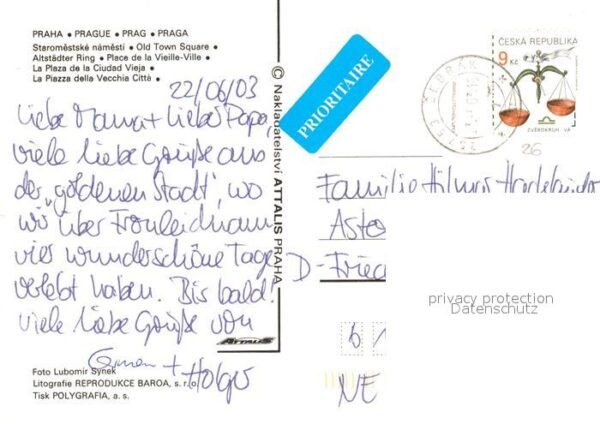 PRAHA • PRAGUE • PRAG • PRAGA
Staroměstské náměstí • Old Town Square •
Altstädter Ring • Place de la Vieille-Ville •
La Plaza de la Ciudad Vieja •
La Piazza della Vecchia Città •
22/06/03
Liebe Mama + Lieber Papa
viele liebe Grüße aus
der „goldenen Stadt", wo
wir über Fronleichnam
vier wunderschöne Tage
verlebt haben. Bis bald!
viele liebe Grüße von
+ Holger
Foto Lubomír Synek
Litografie REPRODUKCE BAROA, s. r. o.
Tisk POLYGRAFIA, a. s.
© Nakladatelství ATTALIS PRAHA
ATTALIS
PRIORITAIRE
ČESKÁ REPUBLIKA
9 Kč
ZVĚROKRUH VÁ
26
Familie Hilmar
Asto
D-Fried
privacy protection
Datenschutz
6
NE